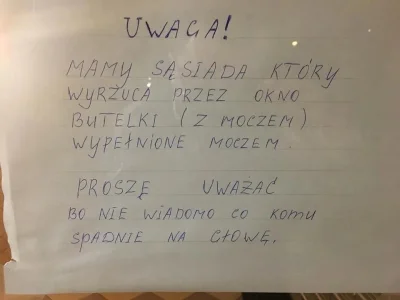 UWAGA!
MAMY SĄSIADA KTÓRY
WYRZUCA PRZEZ OKNO
BUTELKI (Z MOCZEM)
WYPEŁNIONE MOCZEM.
PROSZĘ UWAŻAĆ
BO NIE WIADOMO CO KOMU
SPADNIE NA GŁOWĘ.